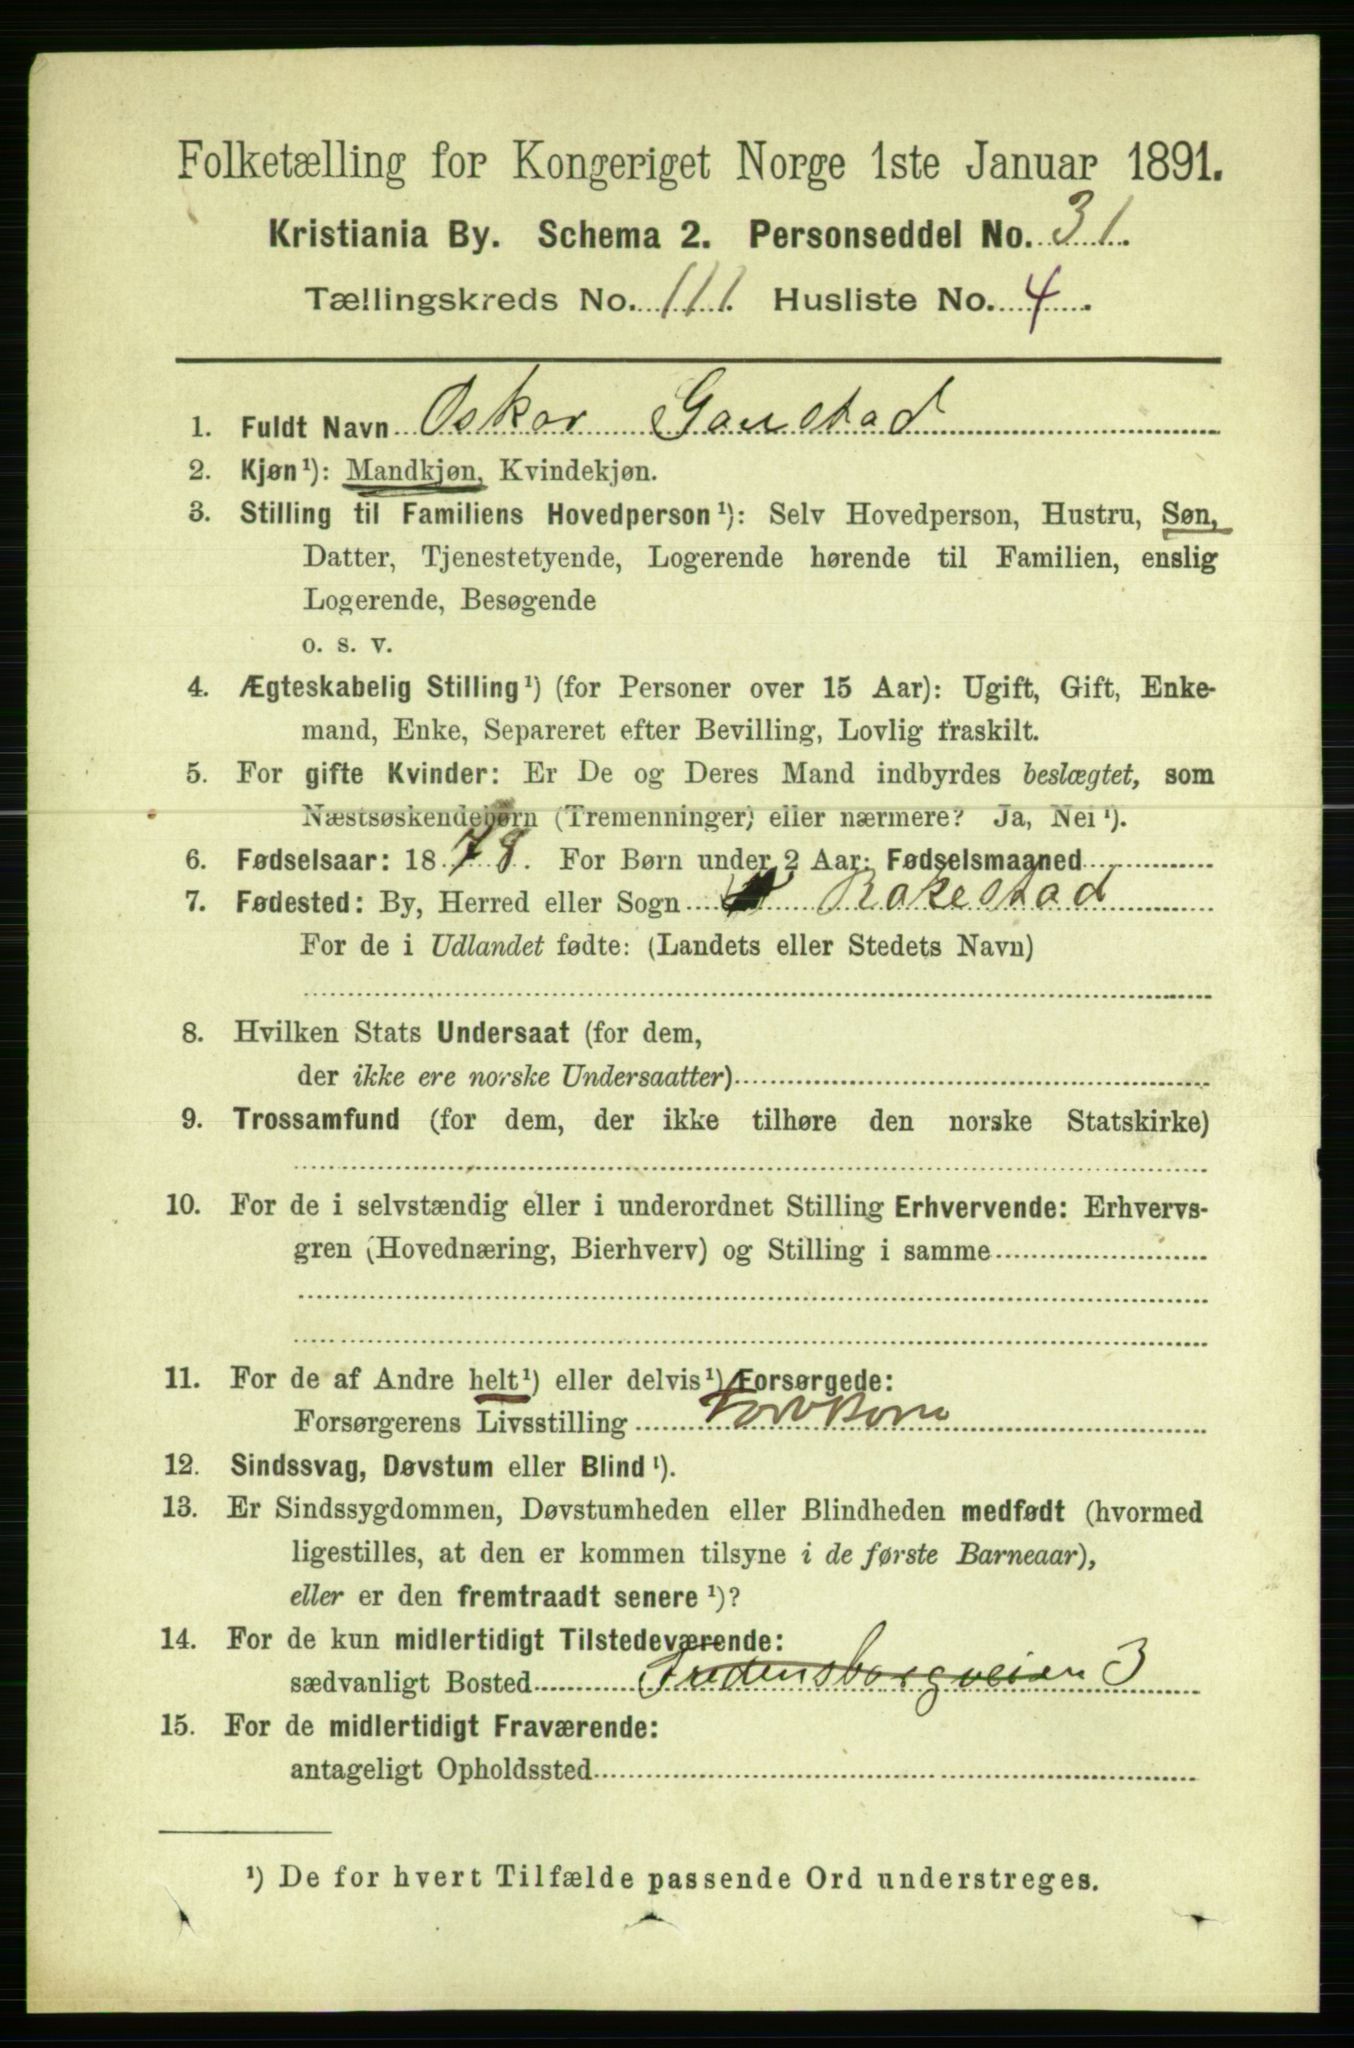 Folketælling for Kongeriget Norge 1ste Januar 1891.
Kristiania By. Schema 2. Personseddel No. 31.
Tællingskreds No. 111. Husliste No. 4.
1. Fuldt Navn Oskar Gaustad
2. Kjøn¹): Mandkjøn, Kvindekjøn.
3. Stilling til Familiens Hovedperson¹): Selv Hovedperson, Hustru, Søn,
Datter, Tjenestetyende, Logerende hørende til Familien, enslig
Logerende, Besøgende
o. s. v.
4. Ægteskabelig Stilling¹) (for Personer over 15 Aar): Ugift, Gift, Enke-
mand, Enke, Separeret efter Bevilling, Lovlig fraskilt.
5. For gifte Kvinder: Er De og Deres Mand indbyrdes beslægtet, som
Næstsøskendebørn (Tremenninger) eller nærmere? Ja, Nei¹).
6. Fødselsaar: 1878. For Børn under 2 Aar: Fødselsmaaned
7. Fødested: By, Herred eller Sogn Rakestad
For de i Udlandet fødte: (Landets eller Stedets Navn)
8. Hvilken Stats Undersaat (for dem,
der ikke ere norske Undersaatter)
9. Trossamfund (for dem, der ikke tilhøre den norske Statskirke)
10. For de i selvstændig eller i underordnet Stilling Erhvervende: Erhvervs-
gren (Hovednæring, Bierhverv) og Stilling i samme
11. For de af Andre helt¹) eller delvis¹) Forsørgede:
Forsørgerens Livsstilling
12. Sindssvag, Døvstum eller Blind¹).
13. Er Sindssygdommen, Døvstumheden eller Blindheden medfødt (hvormed
ligestilles, at den er kommen tilsyne i de første Barneaar),
eller er den fremtraadt senere¹)?
14. For de kun midlertidigt Tilstedeværende:
sædvanligt Bosted Fredensborgveien 3
15. For de midlertidigt Fraværende:
antageligt Opholdssted
¹) De for hvert Tilfælde passende Ord understreges.